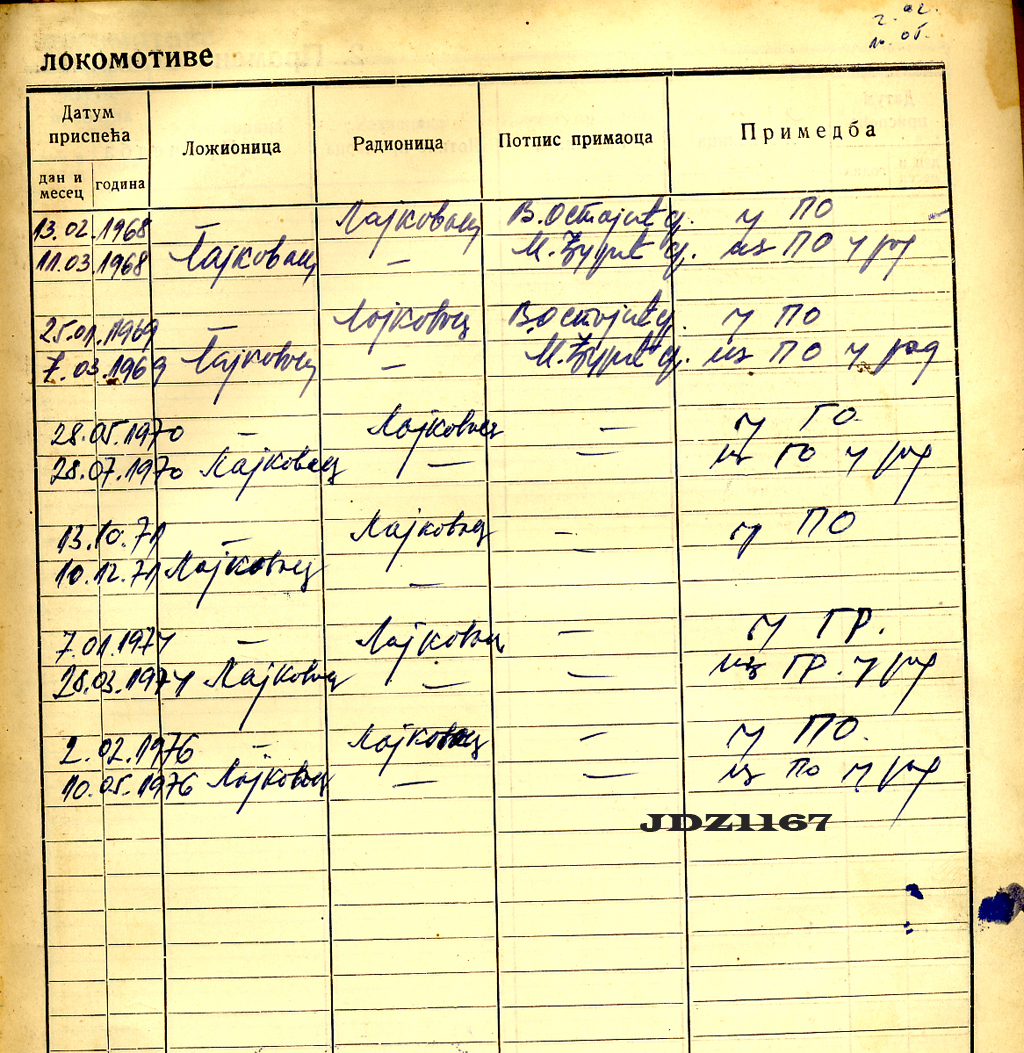 2. 02.
10. 05.
ЛОКОМОТИВЕ
Датум приспећа
Ложионица
Радионица
Потпис примаоца
Примедба
дан и месец
година
13.02. 1968 — Лајковац В. Остојић с.р. у ПО
11.03. 1968 Лајковац — М. с.р. из ПО у рад
25.01. 1969 — Лајковац В. Остојић с.р. у ПО
7.03. 1969 Лајковац — М. с.р. из ПО у рад
28.05.1970 — Лајковац — у ГО.
28.07.1970 Лајковац — — из ГО у рад
13.10.71 — Лајковац — у ПО
10.12.71 Лајковац — —
7.01.1974 — Лајковац — у ГР.
28.03.1974 Лајковац — — из ГР. у рад
2.02.1976 — Лајковац — у ПО.
10.05.1976 Лајковац — — из ПО у рад
JDZ1167